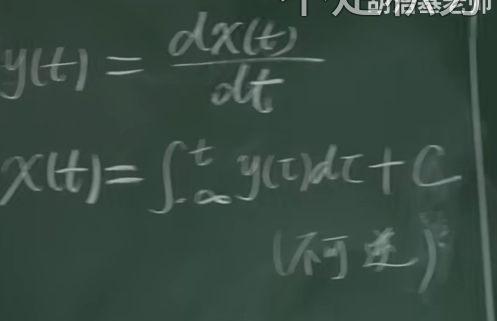 y(t) = dx(t)/dt
x(t) = ∫_{-∞}^{t} y(τ)dτ + C
(不可逆)